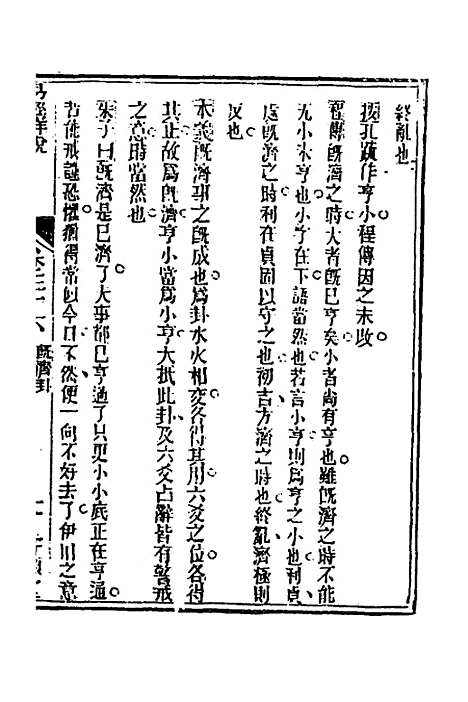 終亂也
按孔疏作亨小程傳因之未改
程傳既濟之時大者既已亨矣小者尚有亨也雖既濟之時不能
无小未亨也小字在下語當然也若言小亨則為亨之小也利貞
處既濟之時利在貞固以守之也初吉方濟之時也終亂濟極則
反也
本義既濟事之既成也為卦水火相交各得其用六爻之位各得
其正故為既濟亨小當為小亨大抵此卦及六爻占辭皆有警戒
之意時當然也
朱子曰既濟是已濟了大事都已亨過了只更小小底正在亨通
若能戒謹恐懼得常似今日不然便一向不好去了伊川之意
易經詳說
既濟卦